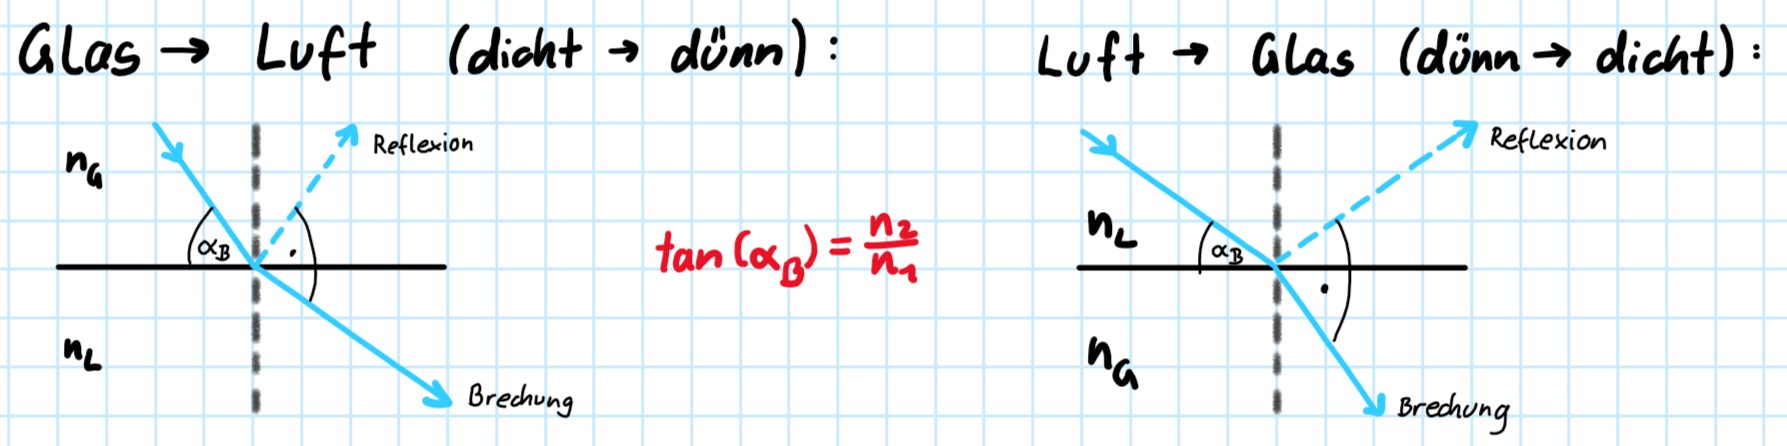 Glas → Luft (dicht → dünn):
n_G
α_B
Reflexion
n_L
Brechung
tan(α_B) = n_2/n_1
Luft → Glas (dünn → dicht):
n_L
α_B
Reflexion
n_G
Brechung